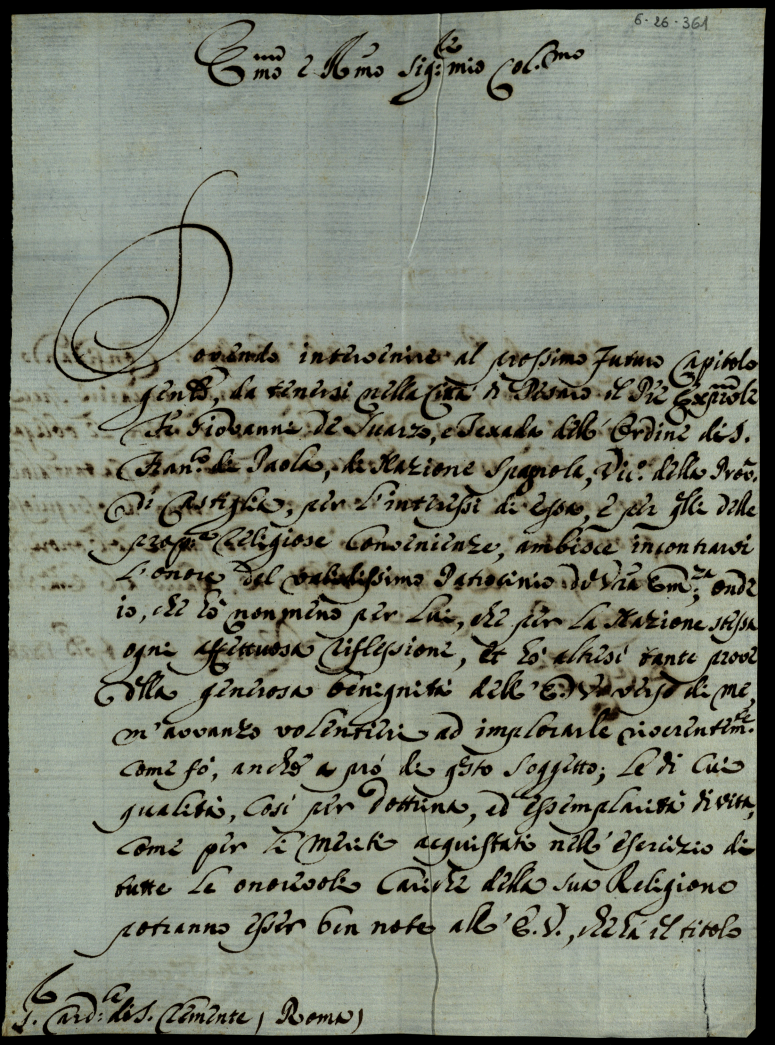 6-26-361
Em.mo e R.mo Sig.re mio Col.mo
Dovendo intervenire al prossimo futuro Capitolo
gen̄le, da tenersi nella Città di Pesaro il P̄re
Fr. Giovanne de Suarzo, e Texada dell' Ordine di S.
Fran.co de Paola, di Nazione Spagnola, Vic.o della Prov.
di Castiglia, per l'interessi di essa, e per q̄lle delle
prop.e Religiose Convenienze, ambisce incontrarsi
l'onore del validissimo Patrocinio di V̄ra Em.za; onde
io, che hò non meno per lui, che per la Nazione stessa
ogni affettuosa riflessione, et hò altresi tante prove
della generosa benignità dell' E. V. verso di me,
m'avvanzo volentieri ad implorarle riverentem.te
come fò, anche a prò di q̄sto soggetto; le di cui
qualità, così per dottrina, ed essemplarità di vita,
come per li meriti acquistati nell' esercizio di
tutte le onorevoli cariche della sua Religione
potranno esser ben note all' E. V., che hà il titolo
S. Card.le di S. Clemente / Roma /